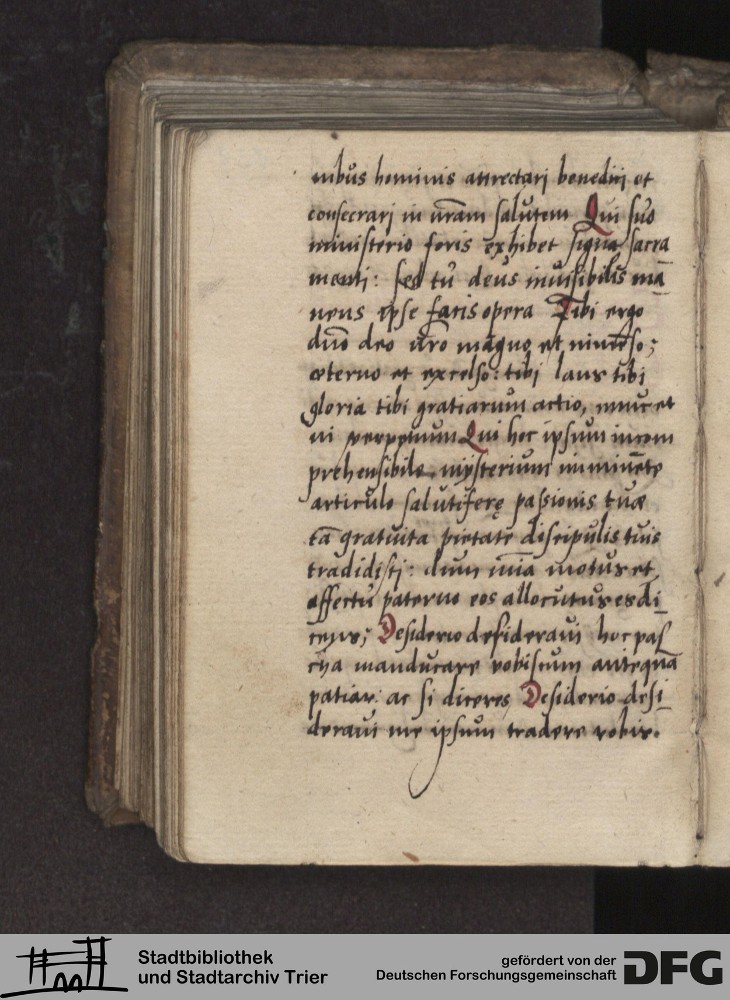 nibus hominis attrectari benedici et
consecrari in vr̄am salutem Qui suo
ministerio foris exhibet signa sacra
menti: sed tu deus inuisibilis ma
nens ipse facis opera Tibi ergo
dn̄o deo vr̄o magno et
æterno et excelso: tibi laus tibi
gloria tibi gratiarum actio, nunc et
in perpetuum Qui hoc ipsum incom
prehensibile mysterium imminēte
articulo salutiferę passionis tuæ
tā gratuita pietate discipulis tuis
tradidisti: dum mīa motus et
affectu paterno eos allocutus es di
cens; Desiderio desideraui hoc pas
cha manducare vobiscum antequā
patiar: ac si diceres Desiderio desi
deraui me ipsum tradere vobis.
Stadtbibliothek
und Stadtarchiv Trier
gefördert von der
Deutschen Forschungsgemeinschaft
DFG